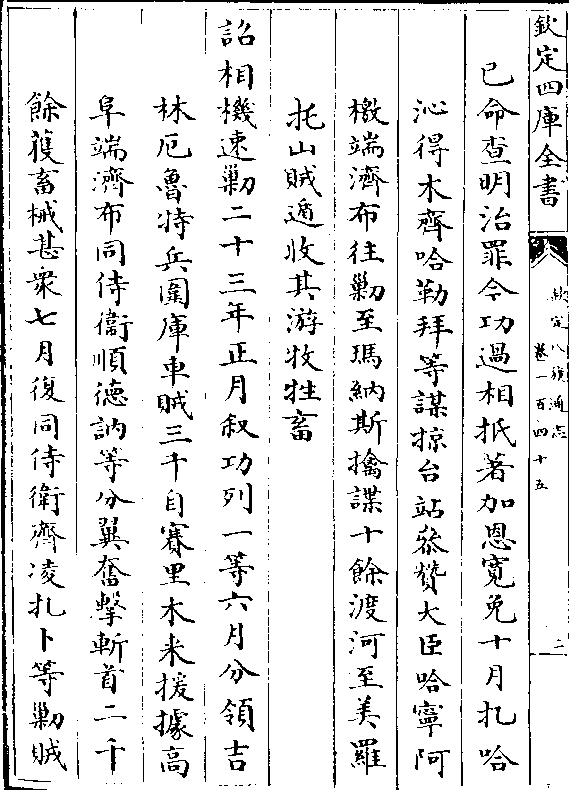 欽定四庫全書
欽定八旗通志
卷一百四十五
二
已命查明治罪令功過相抵著加恩寬免十月扎哈
沁得木齊哈勒拜等謀掠台站叅贊大臣哈寧阿
檄端濟布往勦至瑪納斯擒諜十餘渡河至美羅
托山賊遁收其游牧牲畜
詔相機速勦二十三年正月叙功列一等六月分領吉
林厄魯特兵圍庫車賊三千自賽里木来援據高
阜端濟布同侍衞順德訥等分翼奮擊斬首二千
餘獲畜械甚衆七月復同侍衛齊凌扎卜等勦賊